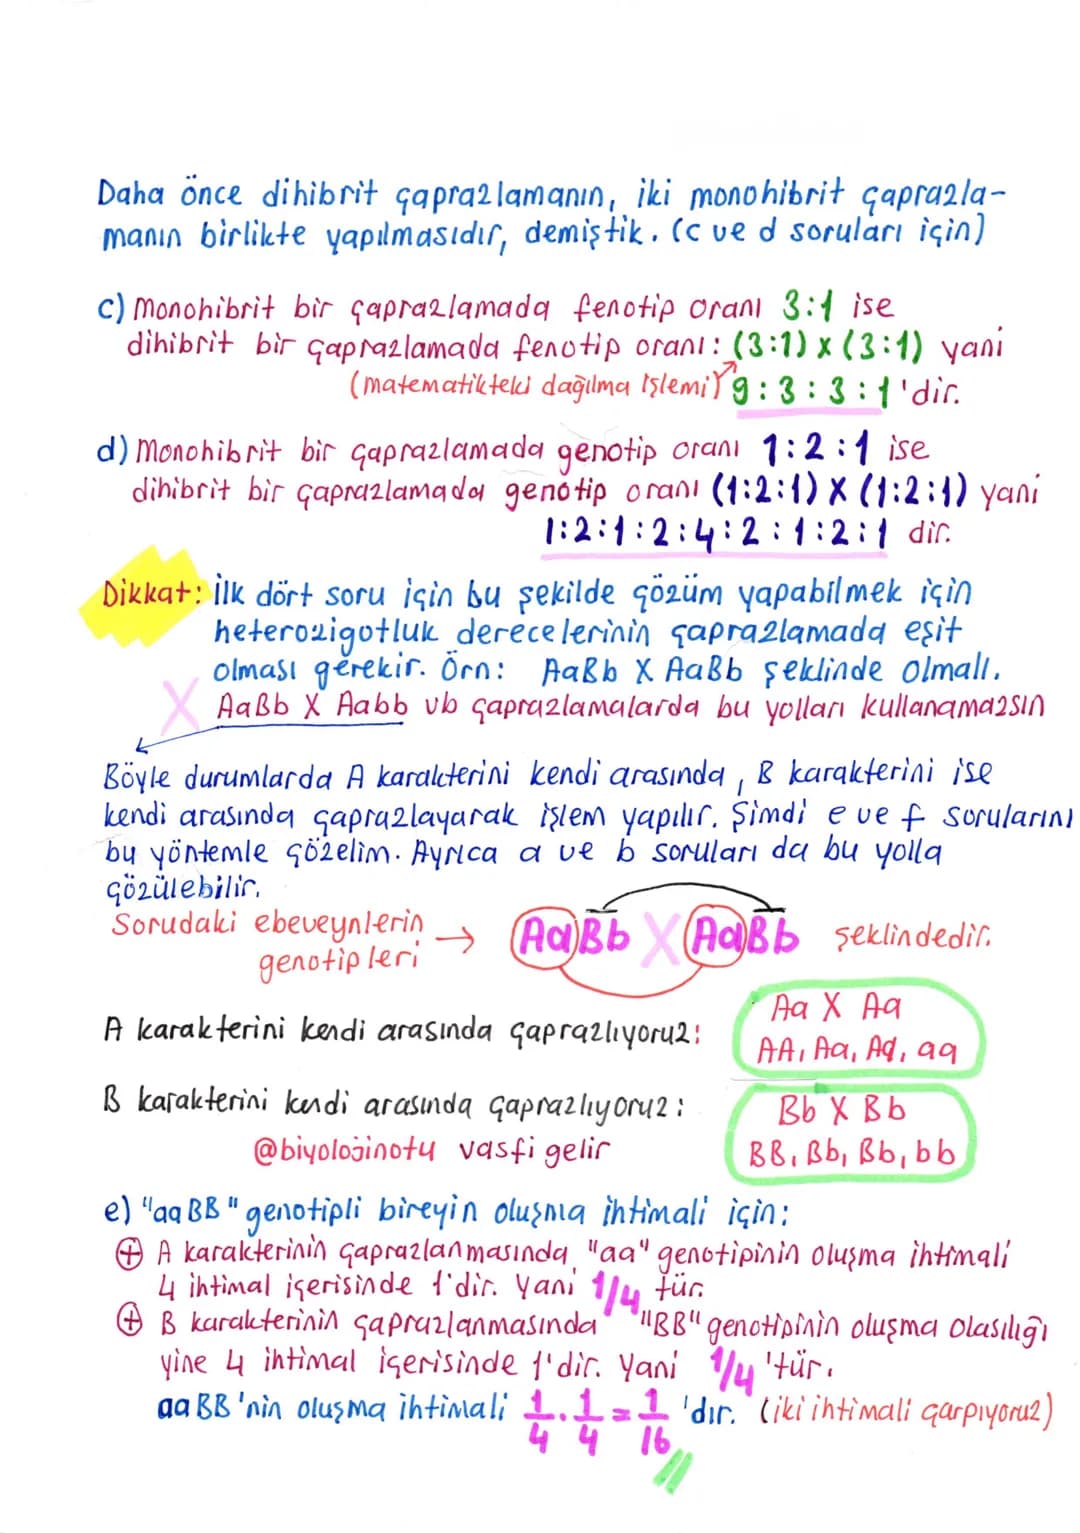 Daha önce dihibrit çaprazlamanın, iki monohibrit çaprazla-
manın birlikte yapılmasıdır, demiştik. (c ve d soruları için)
c) Monohibrit bir çaprazlamada fenotip oranı 3:1 ise
dihibrit bir çaprazlamada fenotip oranı: (3:1) x (3:1) yani
(matematikteki dağılma işlemi) 9:3:3:1'dir.
d) Monohibrit bir çaprazlamada genotip oranı 1:2:1 ise
dihibrit bir çaprazlamada genotip oranı (1:2:1) X (1:2:1) yani
1:2:1:2:4:2:1:2:1 dir.
Dikkat: İlk dört soru için bu şekilde çözüm yapabilmek için
heterozigotluk derecelerinin çaprazlamada eşit
olması gerekir. Örn: AaBb X AaBb şeklinde olmalı.
X AaBb X Aabb vb çaprazlamalarda bu yolları kullanamazsın
Böyle durumlarda A karakterini kendi arasında, B karakterini ise
kendi arasında çaprazlayarak işlem yapılır. Şimdi e ve f sorularını
bu yöntemle çözelim. Ayrıca a ve b soruları da bu yolla
çözülebilir.
Sorudaki ebeveynlerin → AaBb X AaBb şeklindedir.
genotipleri
A karakterini kendi arasında çaprazlıyoruz:
Aa X Aa
AA, Aa, Aa, aa
B karakterini kendi arasında çaprazlıyoruz:
Bb X Bb
BB, Bb, Bb, bb
@biyolojinotu vasfi gelir
e) "aaBB" genotipli bireyin oluşma ihtimali için:
⊕ A karakterinin çaprazlanmasında "aa" genotipinin oluşma ihtimali
4 ihtimal içerisinde 1'dir. Yani 1/4 tür.
⊕ B karakterinin çaprazlanmasında "BB" genotipinin oluşma olasılığı
yine 4 ihtimal içerisinde 1'dir. Yani 1/4 'tür.
aaBB'nin oluşma ihtimali 1/4 . 1/4 = 1/16 'dır. (iki ihtimali çarpıyoruz)